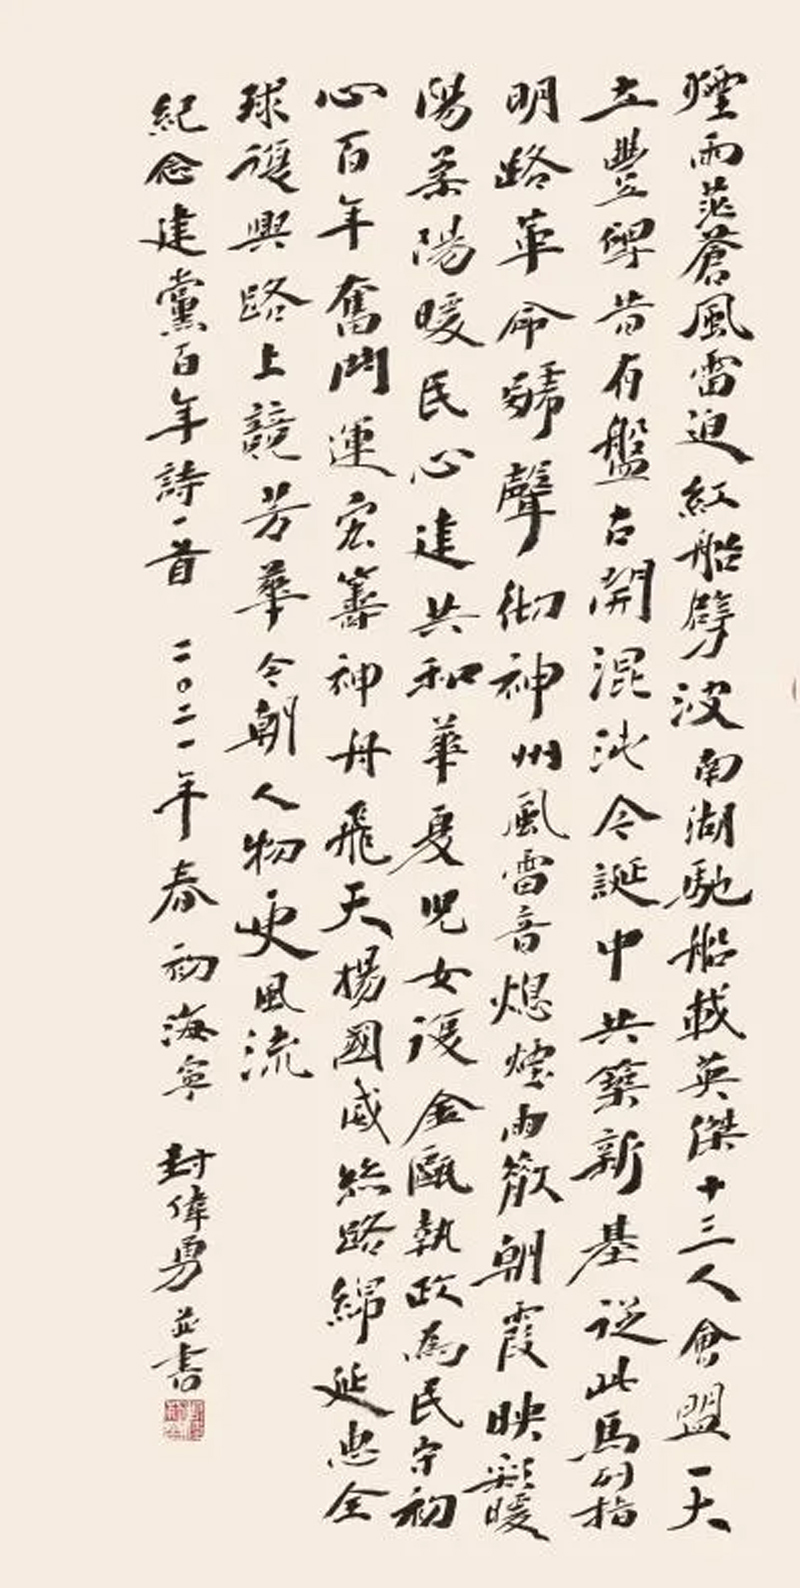 煙雨茫蒼風雷迫紅船劈波南湖馳船載英傑十三人會盟一大
立豐碑昔有盤古開混沌今誕中共築新基從此馬列指
明路革命號聲彻神州風雷音熄煙雨散朝霞映彩暖
陽柔陽暖民心建共和華夏児女護金甌執政為民守初
心百年奮鬥運宏籌神舟飛天揚國威絲路綿延惠全
球復興路上競芳華今朝人物更風流
紀念建黨百年詩一首 二〇二一年春初海寧 封偉勇並書